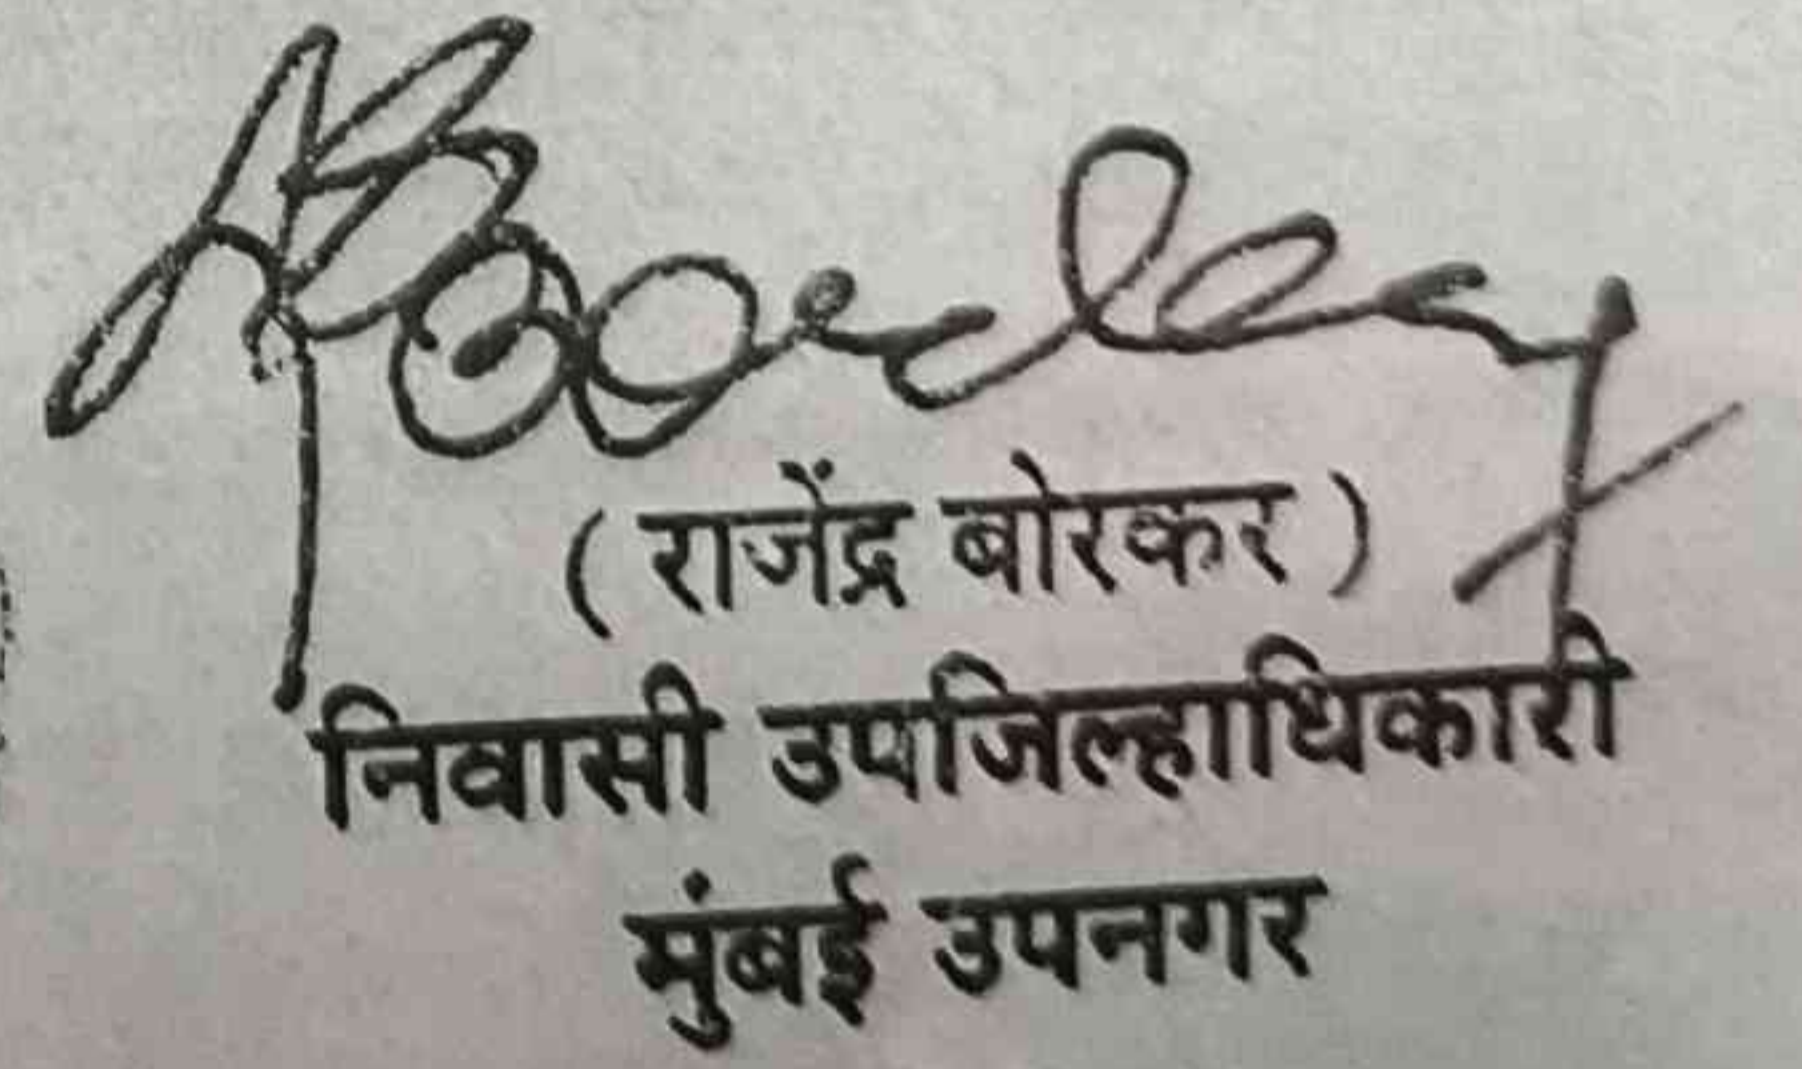 ( राजेंद्र बोरकर )
निवासी उपजिल्हाधिकारी
मुंबई उपनगर